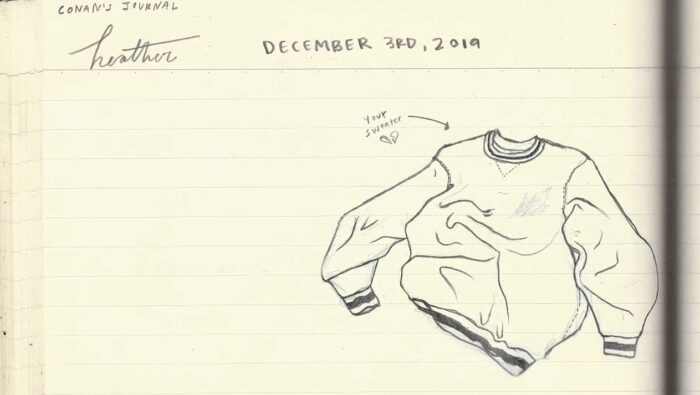 CONAN'S JOURNAL
heather
DECEMBER 3RD, 2019
your
sweater